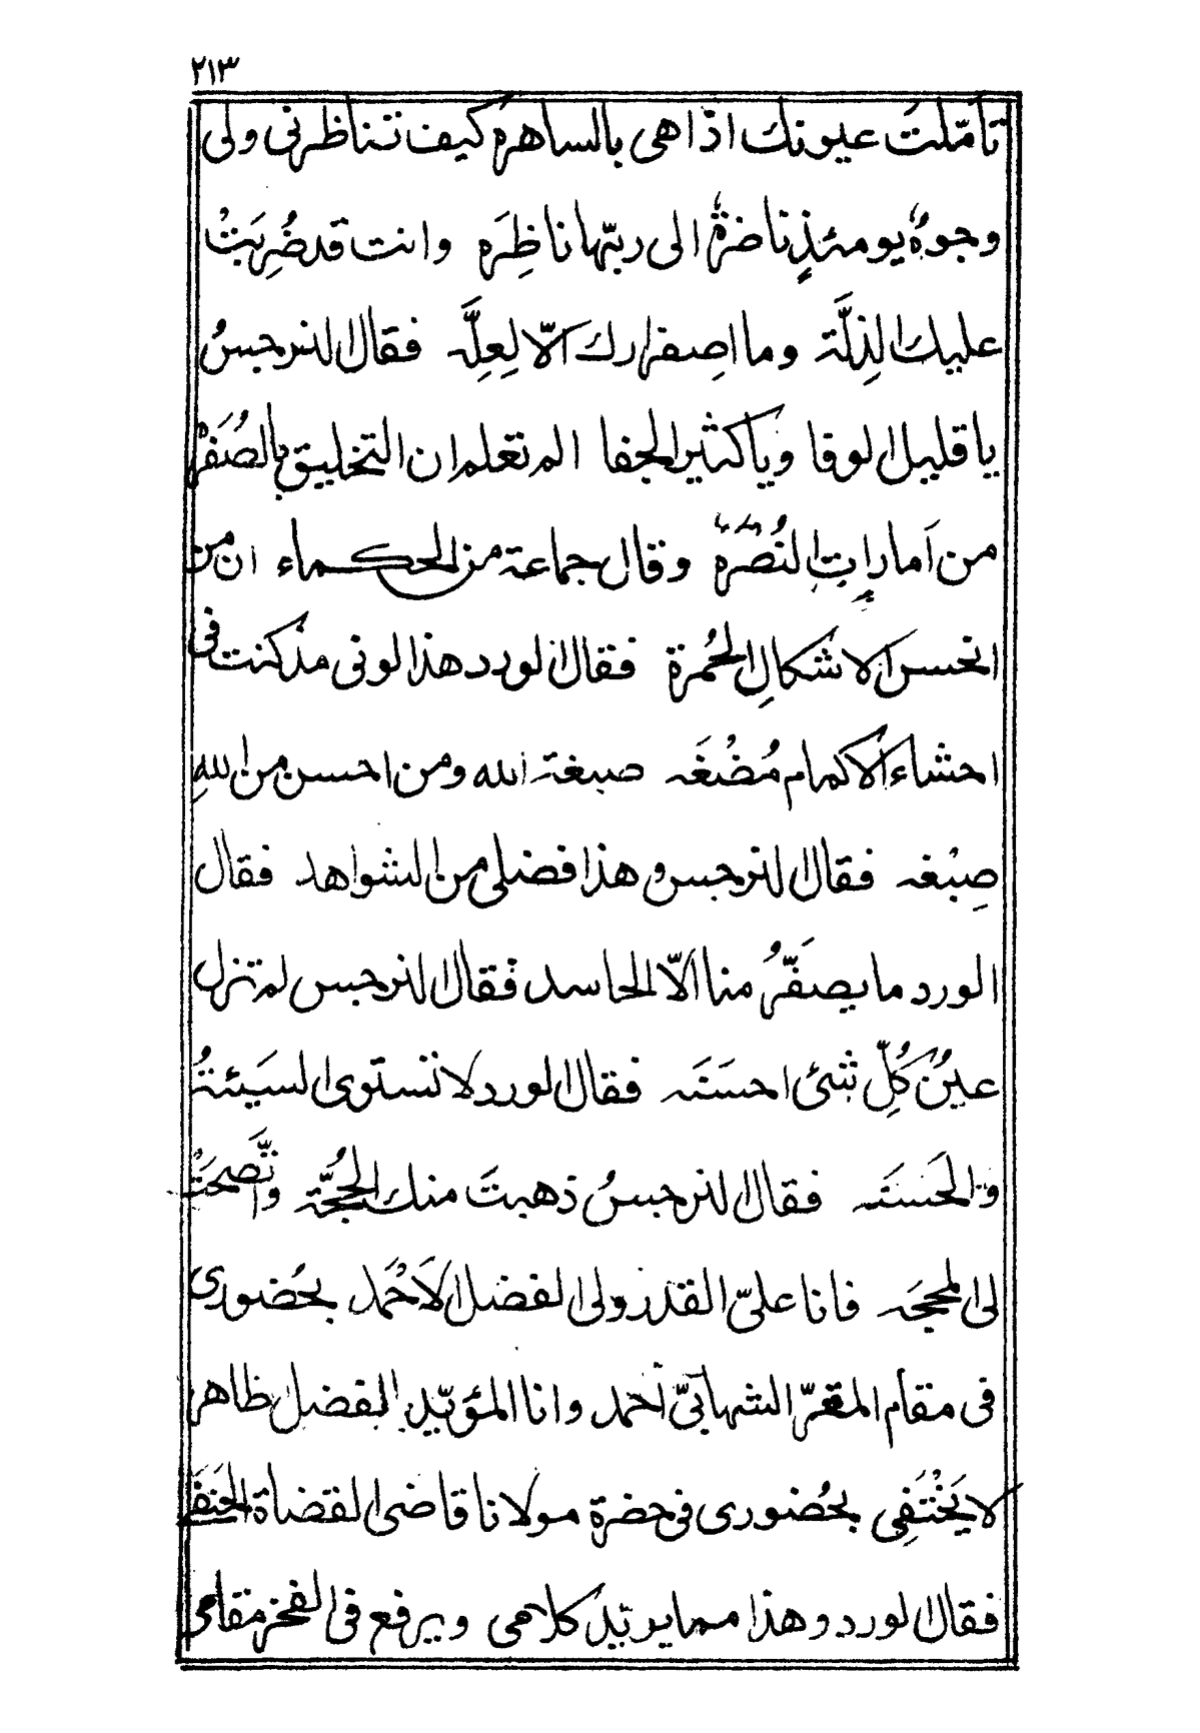 ٢١٣
تأمّلت عيونك اذا هى بالساهره كيف تناظرنى ولى
وجوهٌ يومئذٍ ناضرةٌ الى ربّها ناظِرَه وانت قد ضُرِبَتْ
عليك الذِلَّة وما اصِفرارك الّا لِعِلَّه فقال النرجسُ
يا قليل الوفا ويا كثير الجفا الم تعلم ان التخليق بالصُفَرْه
من اَماراتِ النُصْرَه وقال جماعة من الحكماء ان من
احسن الاشكالِ الحُمرة فقال الورد هذا لونى مذ كنت فى
احشاء الاكمام مُضْغَه صبغة الله ومن احسن من اللهِ
صِبْغه فقال النرجس وهذا فضلى من الشواهد فقال
الورد ما يصفَرُّ منا الّا الحاسد فقال النرجس لم تزل
عينُ كُلِّ شئ احسَنَه فقال الورد لا تستوى السَيئةُ
والحَسنَه فقال النرجسُ ذهبتَ منك الحُجَّة واتَّضحَتْ
لى المحجه فانا علىّ القدر ولى الفضل الاَحْمَد بحُضورى
فى مقام المقرّ الشهابىّ احمد وانا المؤيّد بالفضل ظاهر
لا يَخْتَفِى بحُضورى فى حضرة مولانا قاضى القضاة الحَنَفى
فقال الورد وهذا مما يريّد كلامى ويرفع فى الفخر مقامى